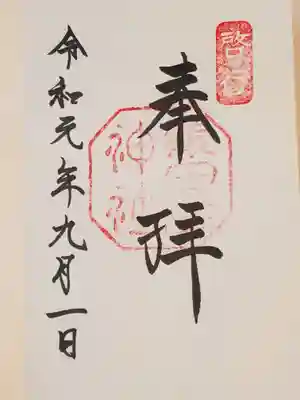 奉拝
神社
令和元年九月一日